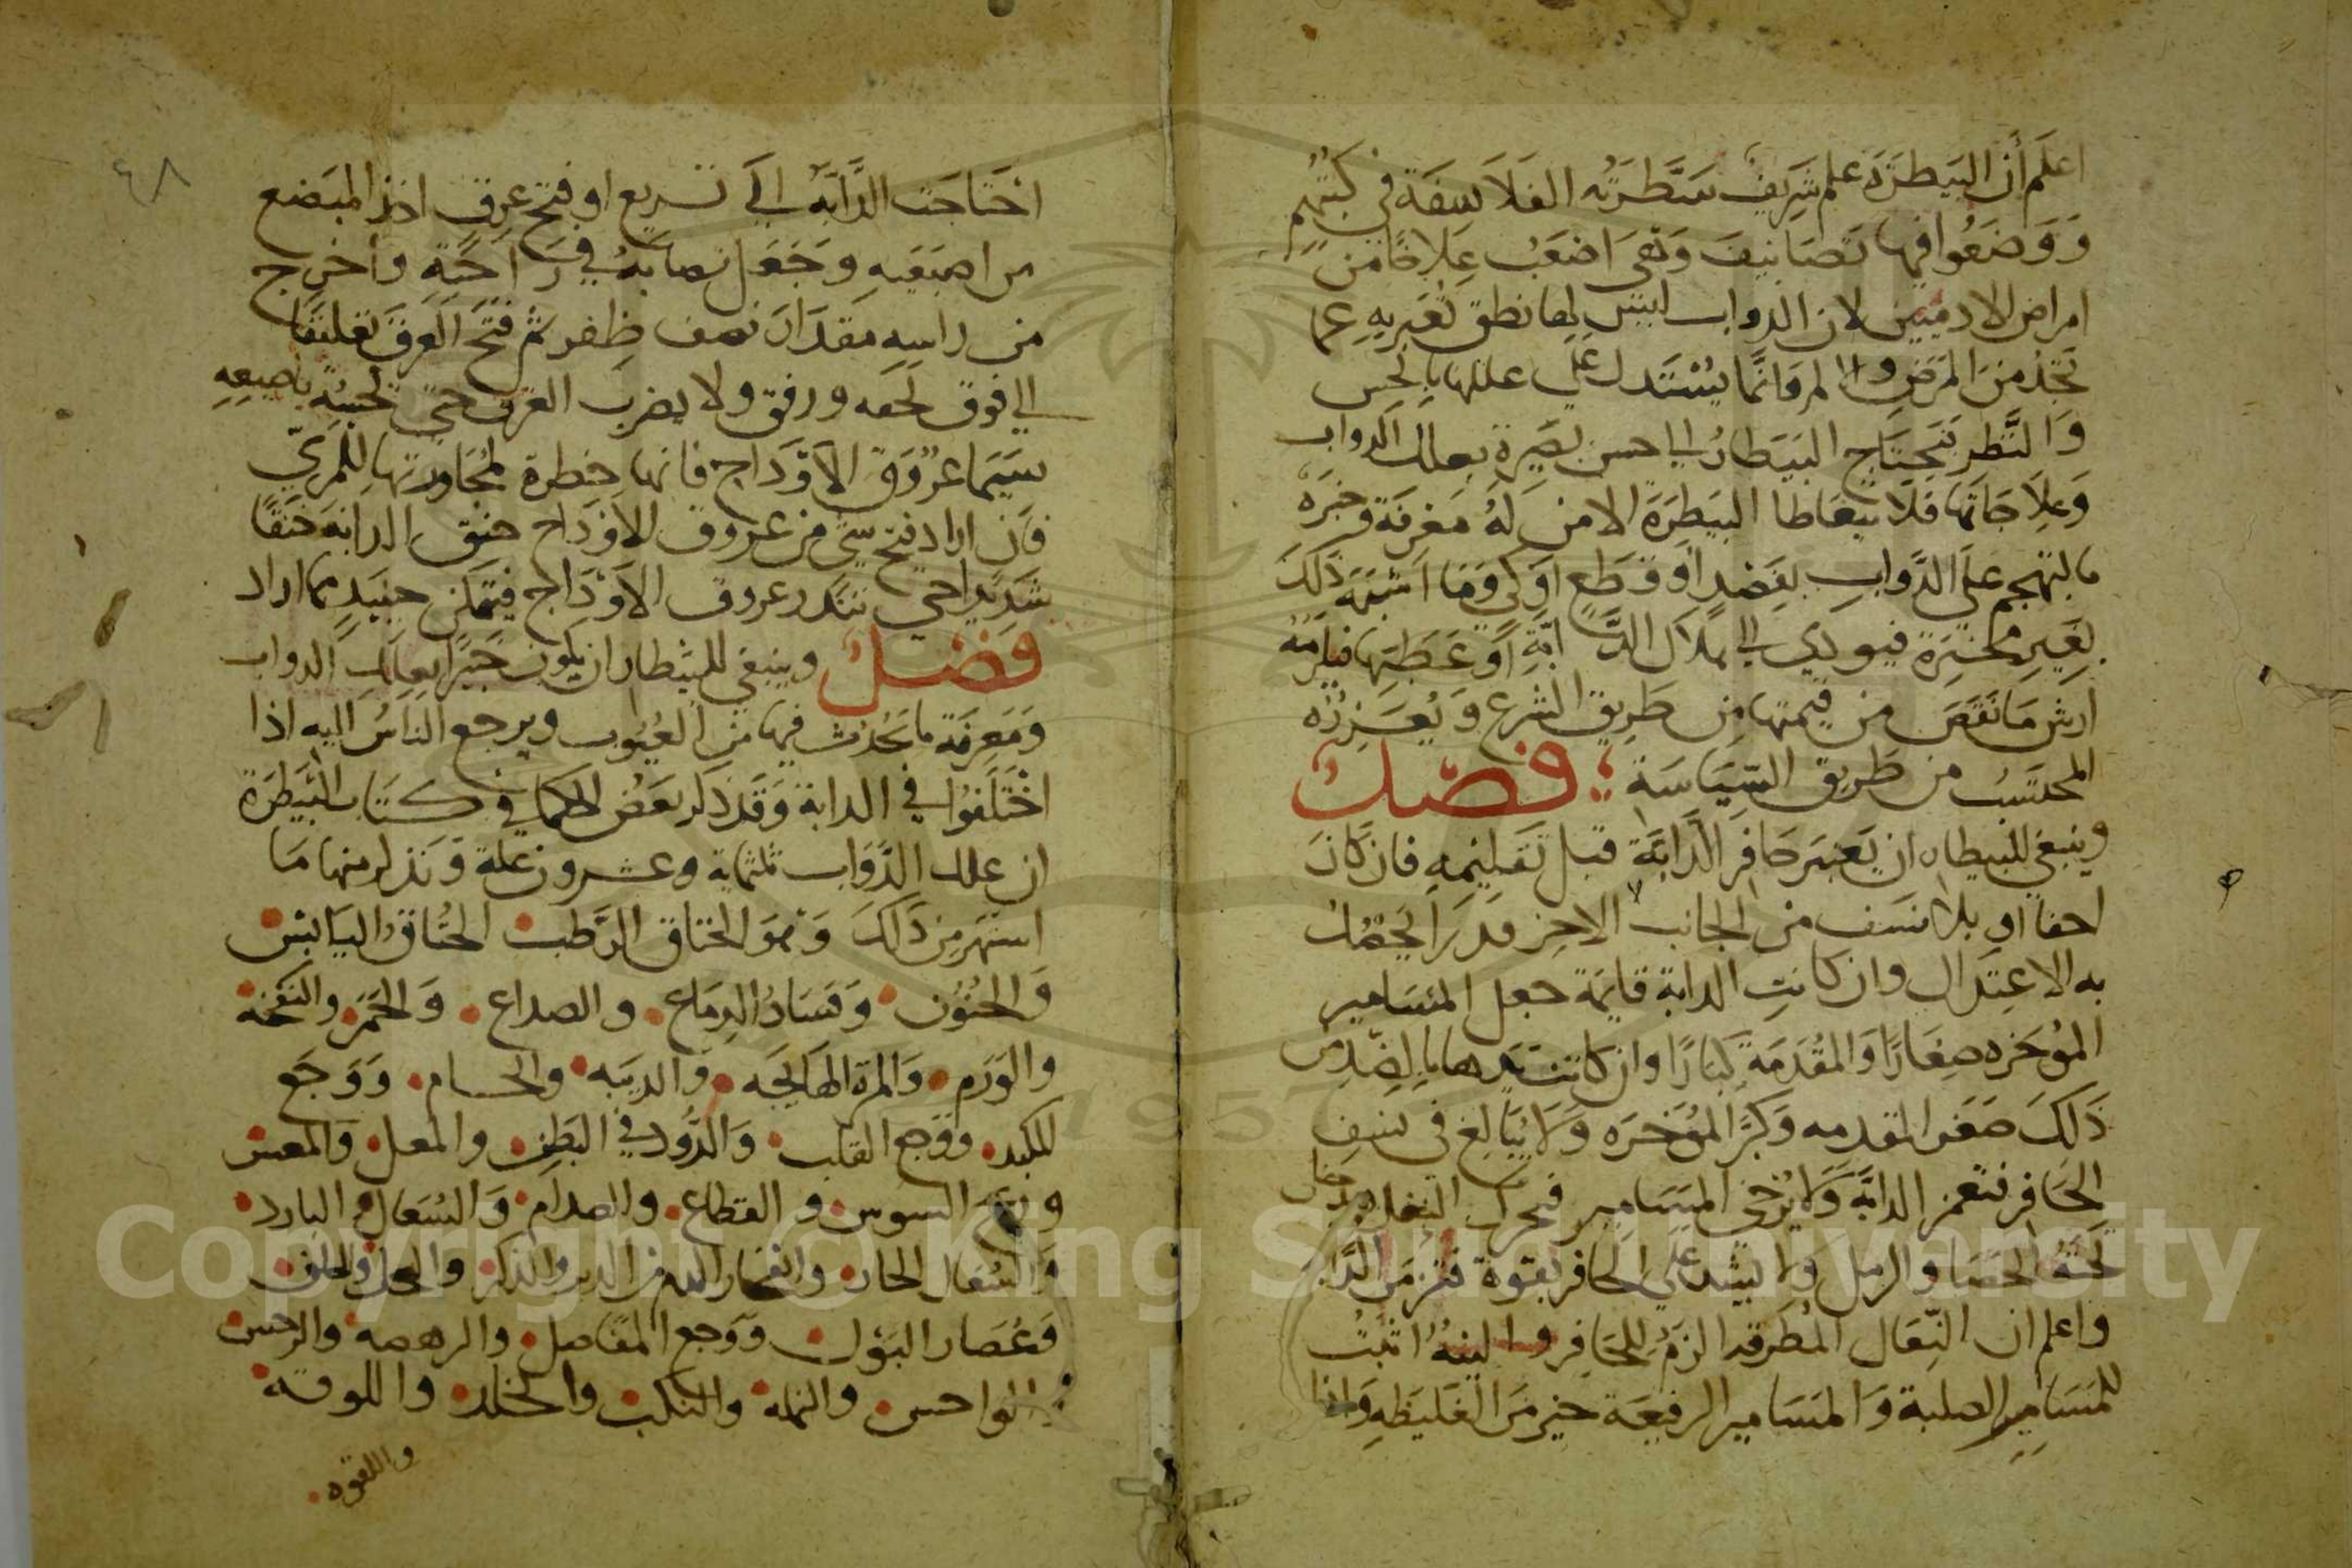 اعلم أن البيطرة علم شريف سطرته الفلاسفة في كتبهم
ووضعوا فيها تصانيف وهي اصعب علاجا من
امراض الادميين لان الدواب ليس لها نطق تعبر به عما
تجد من المرض والالم وانما يستدل على عللها بالجس
والنظر فيحتاج البيطار الى حسن بصيرة بعلل الدواب
وعلاجاتها فلا يتعاطا البيطرة الا من له معرفة وخبره
بالتهجم على الدواب بفصد او قطع او كي وما اشبه ذلك
بغير مخبرة فيودي الى هلاك الدابة او عطبها فيلزمه
ارش ما نقص من قيمتها من طريق الشرع ويعزره
المحتسب من طريق السياسة فصل
وينبغي للبيطار ان يعتبر حافر الدابة قبل تقليمه فان كان
احفا او بلا نسف من الجانب الاخر قدرا يحصل
به الاعتدال وان كانت الدابة قايمة جعل المسامير
المؤخره صغارا والمقدمة كبارا وان كانت يدها بالضد من
ذلك صغر المقدمه وكبر المؤخره ولا يبالغ في نسف
الحافر فتغمز الدابة ولا يرخي المسامير فيتحرك النعل ويدخل
تحته الحصا والرمل ولا يشد على الحافر بقوة فتزمن الدابة
واعلم ان النعال المطرقه الزم للحافر والينه اثبت
للمسامير الصلبة والمسامير الرفيعة خير من الغليظه واذا
احتاجت الدابة الى تسريع او فتح عرق اخذ المبضع
بين اصبعيه وجعل نصابه في راحته واخرج
من راسه مقدار نصف ظفر ثم فتح العرق تعليقا
الى فوق بخفه ورفق ولا يضرب العرق حتى يحبسه باصبعه
سيما عروق الاوداج فانها خطرة لمجاورتها للمريّ
فان اراد فتح شي من عروق الاوداج خنق الدابة خنقا
شديدا حتى تندر عروق الاوداج فيتمكن حينيد مما اراد
فصل وينبغي للبيطار ان يكون خبيرا بعلل الدواب
ومعرفة ما يحدث فيها من العيوب ويرجع الناس اليه اذا
اختلفوا في الدابة وقد ذكر بعض الحكما في كتاب البيطرة
ان علل الدواب ثلثماية وعشرون علة ونذكر منها ما
اشتهر من ذلك وهو الخناق الرطب الخناق اليابس
والجنون وفساد الدماغ والصداع والحمر والنفخة
والورم والمرة الهايجه والديبه والخسام ووجع
الكبد ووجع القلب والدود في البطن والمغل والمغس
وريح السوس والقطاع والصدام والسعال البارد
والسعال الحار وانفجار الدم من الدبر والذكر والبحل والحلق
وعصار البول ووجع المفاصل والرهصه والرخس
والنمله والنكب والخلد واللوقه
واللقوه
Copyright © King Saud University
1957
٤٨